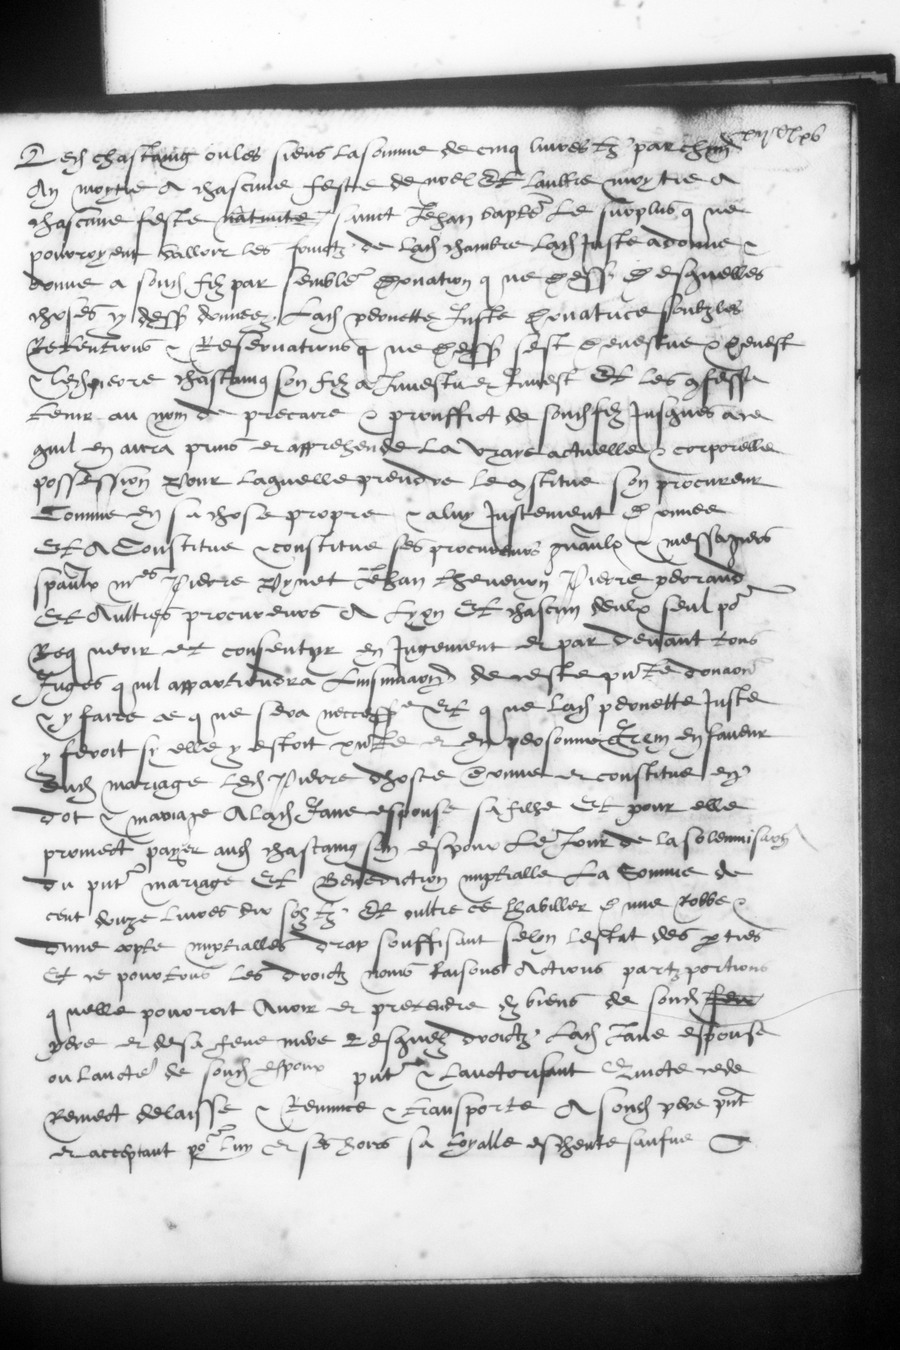 Led chastaing ou les siens la somme de cinq livres tz par chung
An moytie a chascune feste de noel Et laultre moytie a
chascune feste nativite sainct Jehan baptte Le surplus que
pourroyent valloir les fruictz de lad chambre lad Juste a donne &
donne a sond filz par semble donation que dess desquelles
choses cy dess donnees Lad pernette Juste donatrice soubz les
Retentions & Reservations que dess sest devestue & devest
& led pierre chastaing son filz a Investu et Investe Et les confesse
tenir au nom de precaire & prouffict de sond filz Jusques a ce
quil en aura prins et apprehende la vraye actuelle & corporelle
possession Pour laquelle prendre le constitue son procureur
Comme en sa chose propre & a luy Justement donnee
Et A Constitue & constitue ses procureurs gnaulx & messagiers
spaulx mes Pierre Jehan thevenon Pierre
Et Aultres procureurs A Lyon Et chascun deulx seul por
Requerir et consentyr en Jugement et par devant tous
Juges quil appartiendra Linsinuaon de ceste pnte donaon
& y faire ce que sera necesse Et que lad pernette Juste
y feroit sy elle y estoit pnte et en personne Item en faveur
dud mariage Led Pierre dhoste donne et constitue en
dot & mariage A lad Jane espouse sa fille Et pour elle
promect payer aud chastaing son espoux Le Jour de la solemnisaon
du pnt mariage Et Benediction nuptialle La Somme de
cent douze livres dix solz tz Et oultre ce lhabiller dune robbe &
dune cotte nuptialles drap souffisant selon lestat des parties
Et ce pour tous les droictz noms Raisons Actions partz portions
quelle pourroit Avoir et pretendre es biens de sond feu
pere et de sa feue mere Desquelz droictz Lad Jane espouse
ou laucte de sond espoux pnt & lauctorisant Quicte cede
Remect delaisse & Renunce & transporte A sond pere pnt
et acceptant por luy et ses hoirs sa loyalle escheute saufve